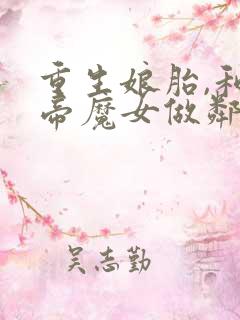 重生娘胎,和
帝魔女做鄰
吴志勤